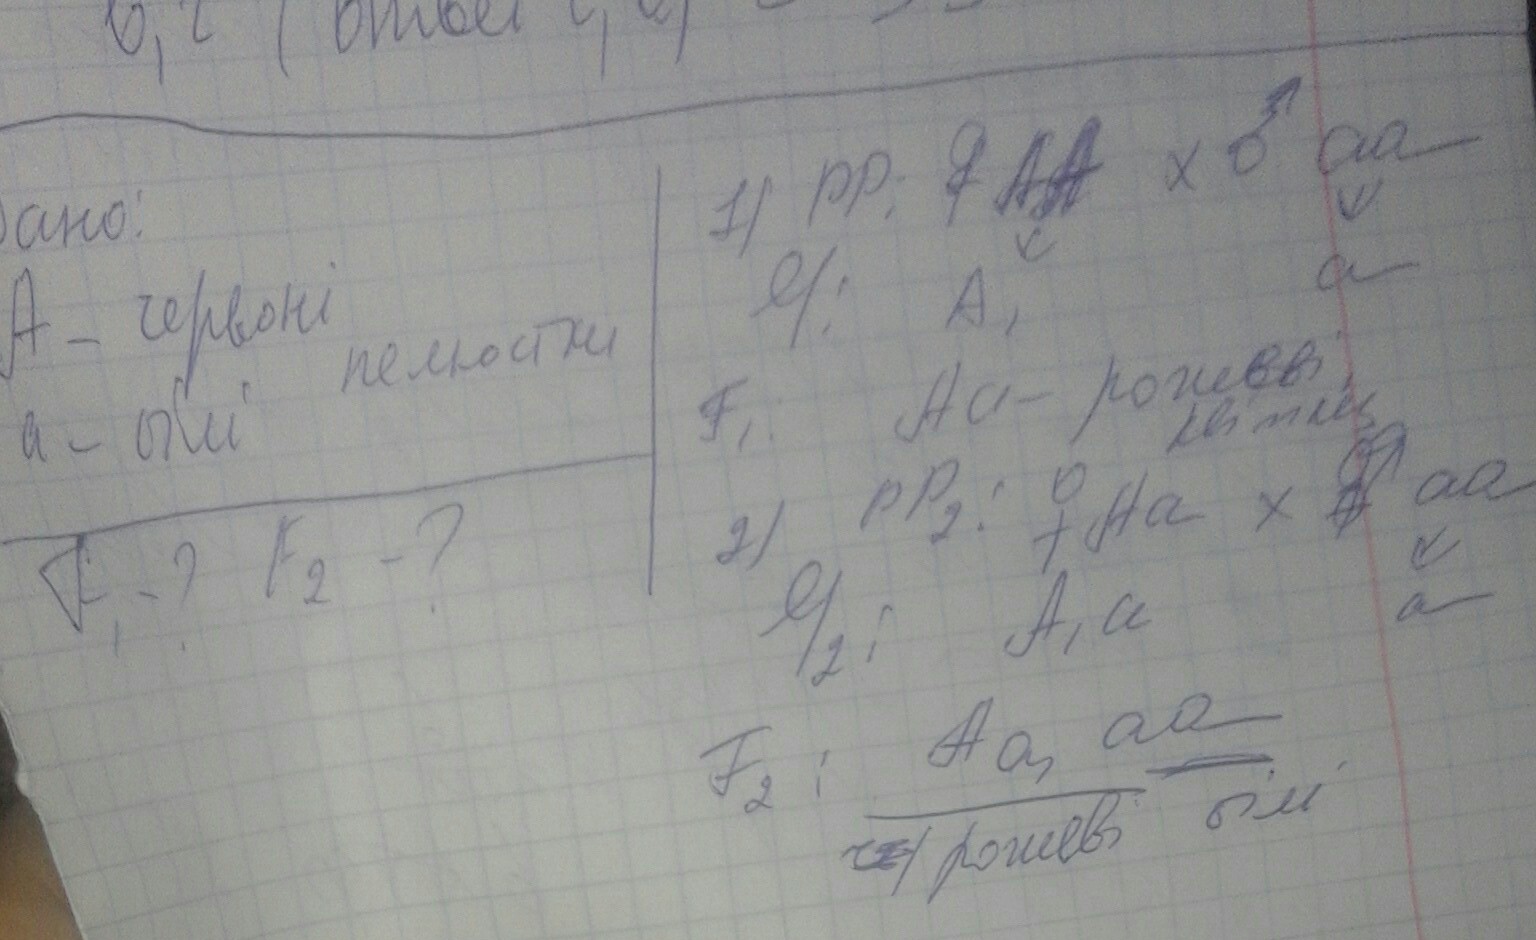 Дано:
A – червоні
пелюстки
a – білі
F₁ - ? F₂ - ?
1) PP: ♀ AA x ♂ aa
G: A, a
F₁: Aa – рожеві
2) PP₂: ♀ Aa x ♂ aa
G₂: A, a a
F₂: Aa, aa
рожеві білі